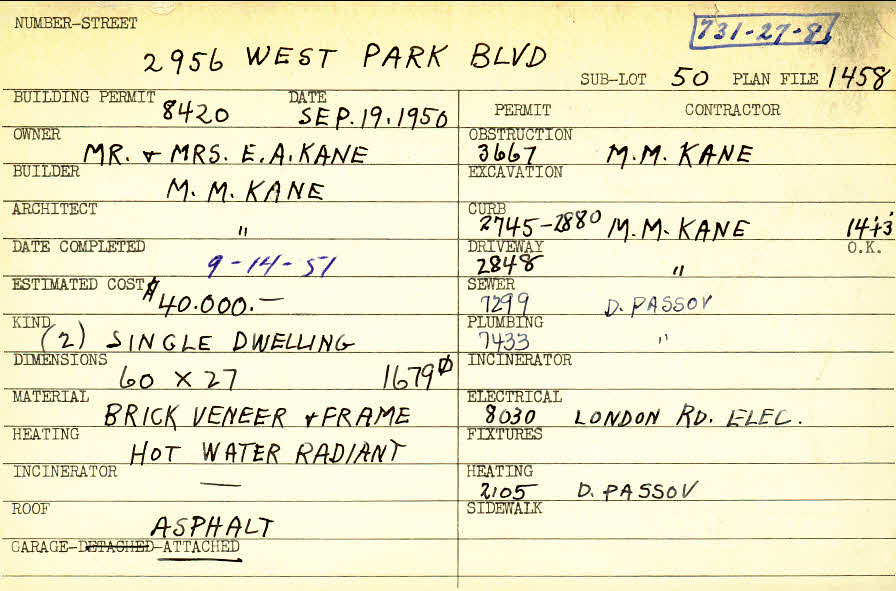 NUMBER-STREET
731-27-8
2956 WEST PARK BLVD
SUB-LOT 50 PLAN FILE 1458
BUILDING PERMIT 8420 DATE SEP. 19. 1950
OWNER MR. & MRS. E. A. KANE
BUILDER M. M. KANE
ARCHITECT "
DATE COMPLETED 9-14-51
ESTIMATED COST $40.000.—
KIND (2) SINGLE DWELLING
DIMENSIONS 60 X 27 1679
MATERIAL BRICK VENEER & FRAME
HEATING HOT WATER RADIANT
INCINERATOR —
ROOF ASPHALT
GARAGE-DETACHED-ATTACHED
PERMIT CONTRACTOR
OBSTRUCTION 3667 M.M. KANE
EXCAVATION
CURB 2745-2880 M.M. KANE
O.K.
DRIVEWAY 2848 "
SEWER 7299 D. PASSOV
PLUMBING 7433 "
INCINERATOR
ELECTRICAL 8030 LONDON RD. ELEC.
FIXTURES
HEATING 2105 D. PASSOV
SIDEWALK